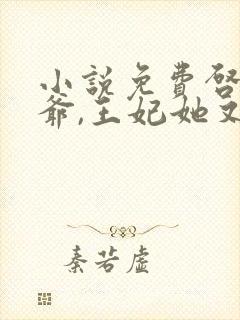 小說免費啓
爺,王妃她又
秦若虛